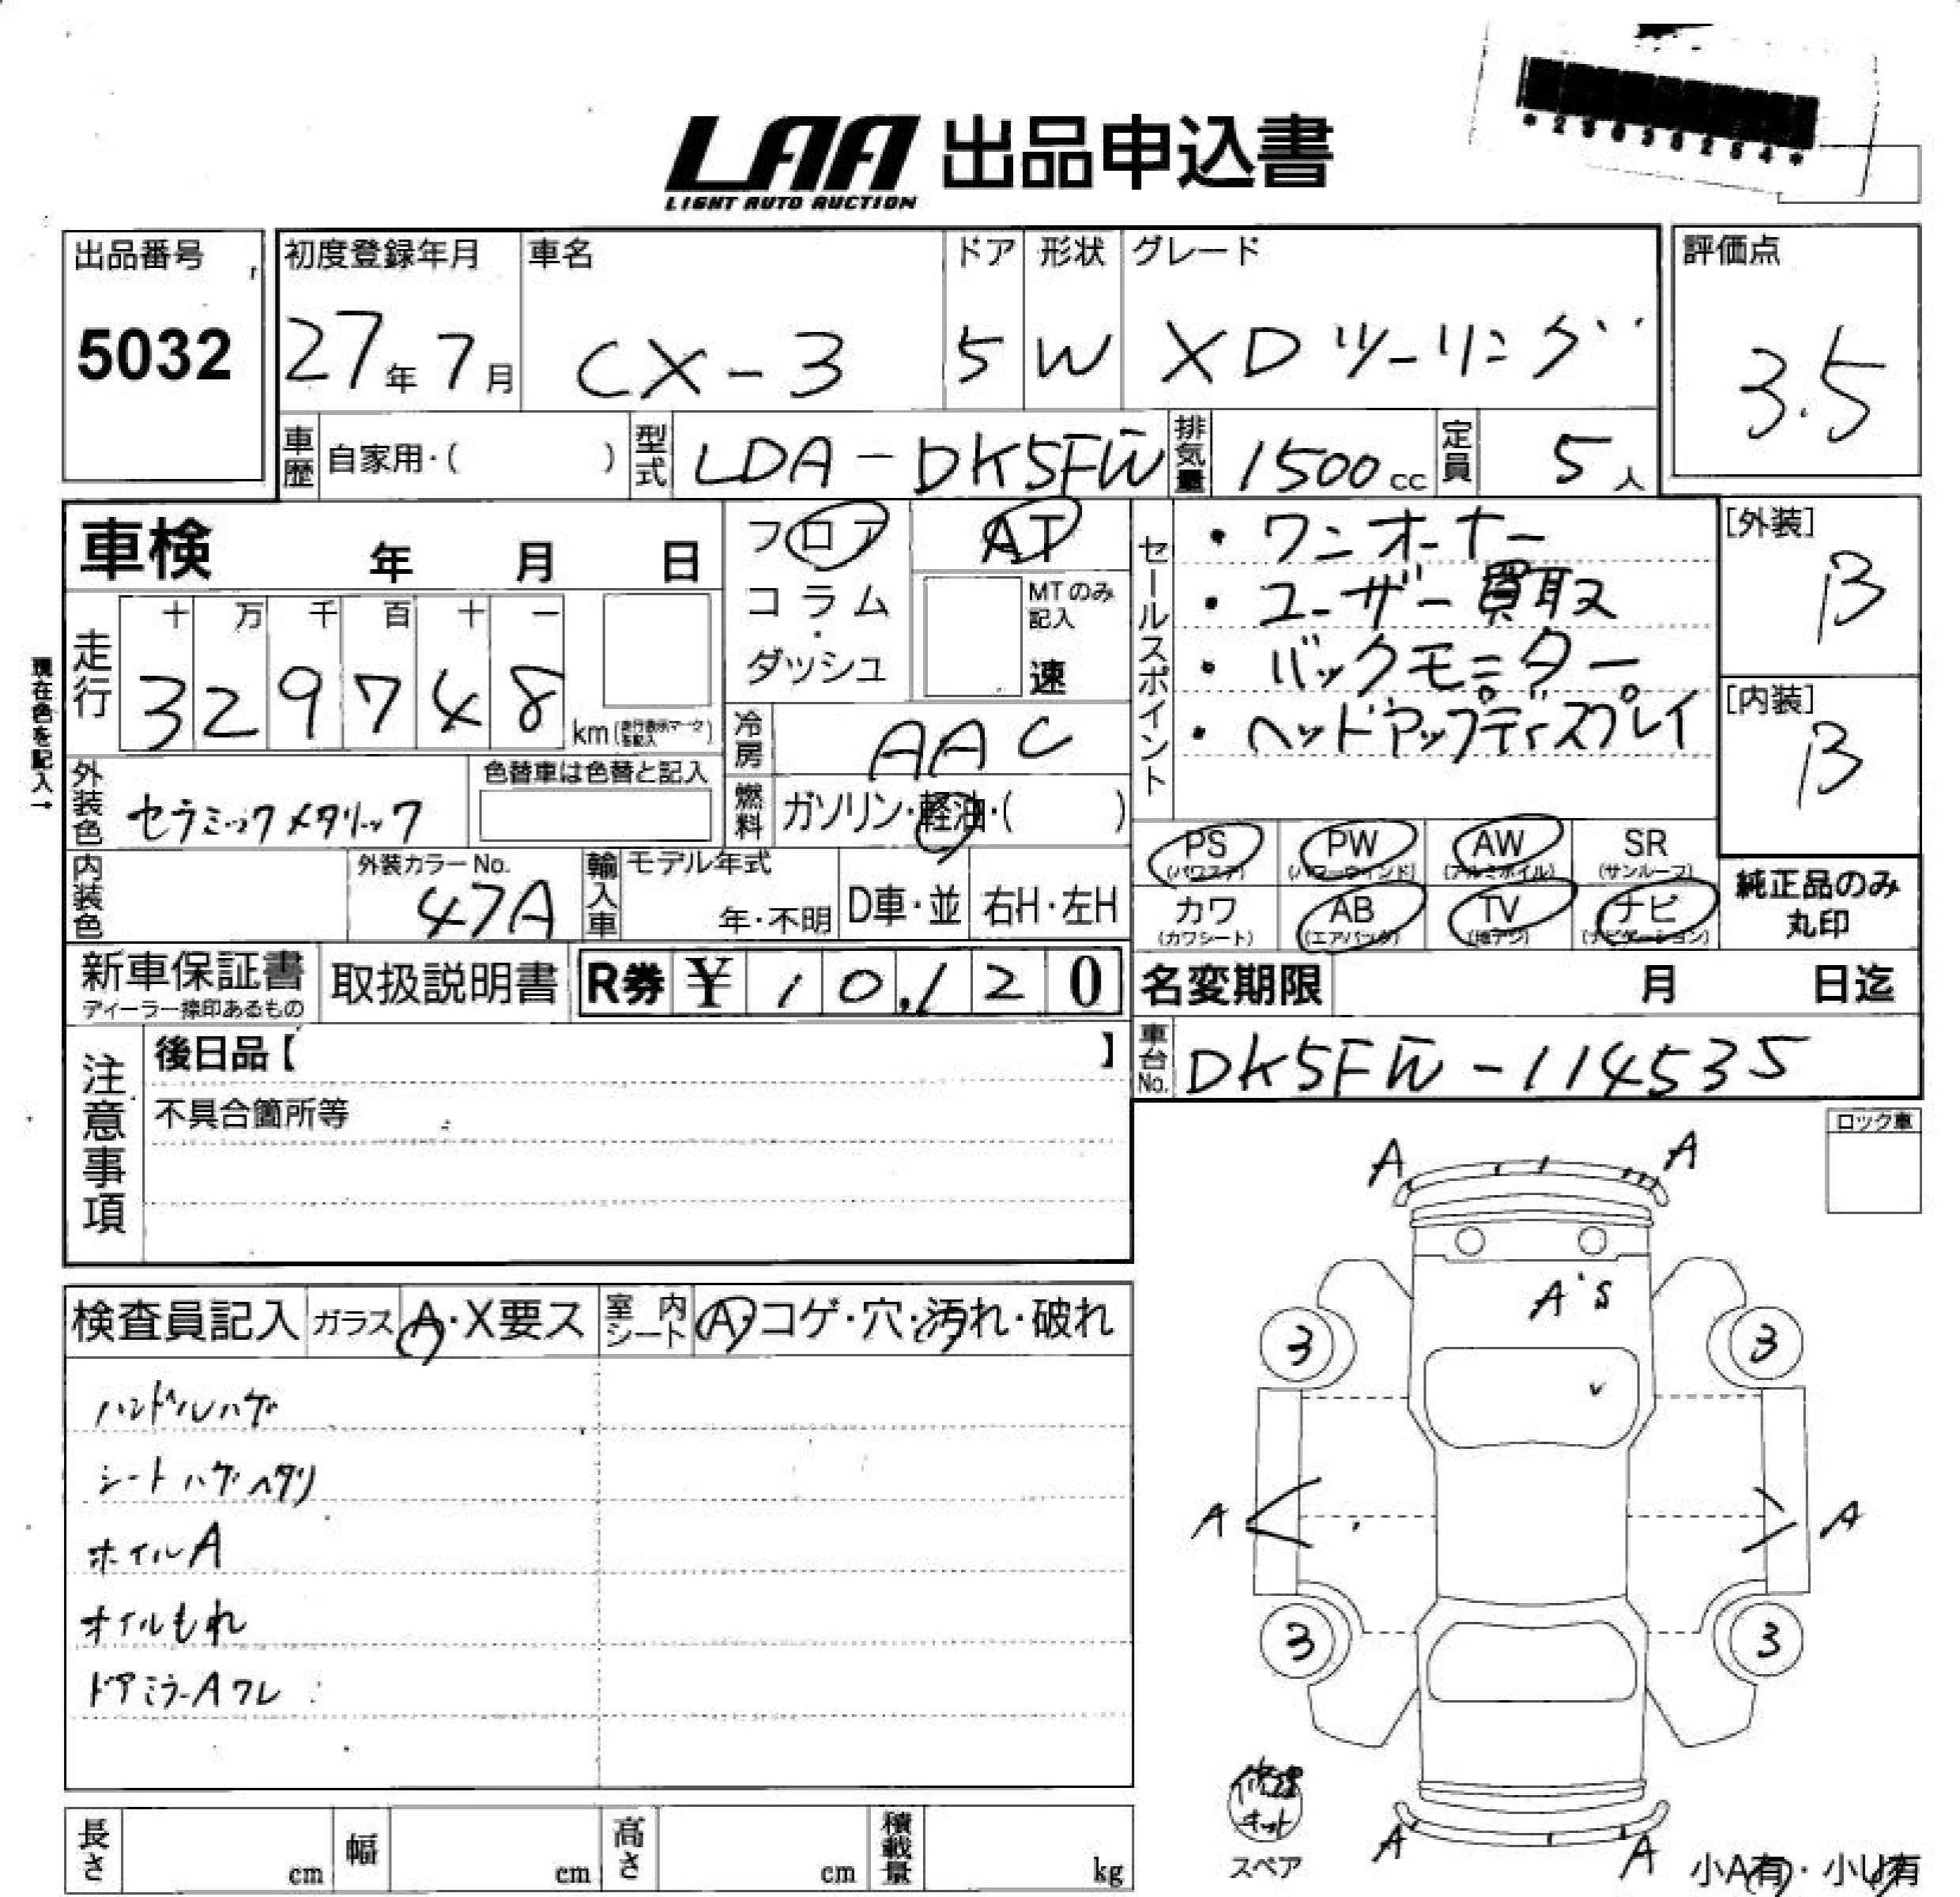 LAA 出品申込書
LIGHT AUTO AUCTION
出品番号
5032
初度登録年月
27年7月
車名
CX-3
ドア
5
形状
W
グレード
XDツーリング
評価点
3.5
車歴
自家用・( )
型式
LDA-DK5FW
排気量
1500cc
定員
5人
車検 年 月 日
フロア
コラム
・
ダッシュ
AT
MTのみ記入
速
セールスポイント
・ワンオーナー
・ユーザー買取
・バックモニター
・ヘッドアップディスプレイ
[外装]
B
[内装]
B
現在色を記入→
走行
十 万 千 百 十 一
3 2 9 7 4 8 km
冷房
AAC
外装色
セラミックメタリック
色替車は色替と記入
燃料
ガソリン・軽油・( )
PS
(パワステ)
PW
(パワーウィンド)
AW
(アルミホイル)
SR
(サンルーフ)
カワ
(カワシート)
AB
(エアバッグ)
TV
(地デジ)
ナビ
(ナビゲーション)
純正品のみ
丸印
内装色
外装カラーNo.
47A
輸入車
モデル年式
年・不明
D車・並
右H・左H
新車保証書
ディーラー捺印あるもの
取扱説明書
R券 ¥ 10,120
名変期限 月 日迄
車台No.
DK5FW-114535
注意事項
後日品【 】
不具合箇所等
ロック車
検査員記入
ガラス A・X要ス
室内シート
A・コゲ・穴・汚れ・破れ
ハンドルハゲ
シートハゲヘタリ
ホイルA
オイルもれ
ドアミラーAワレ
A A
A'S
3 3
A A
3 3
修理キット
スペア
A A
小A有・小U有
長さ cm
幅 cm
高さ cm
積載量 kg